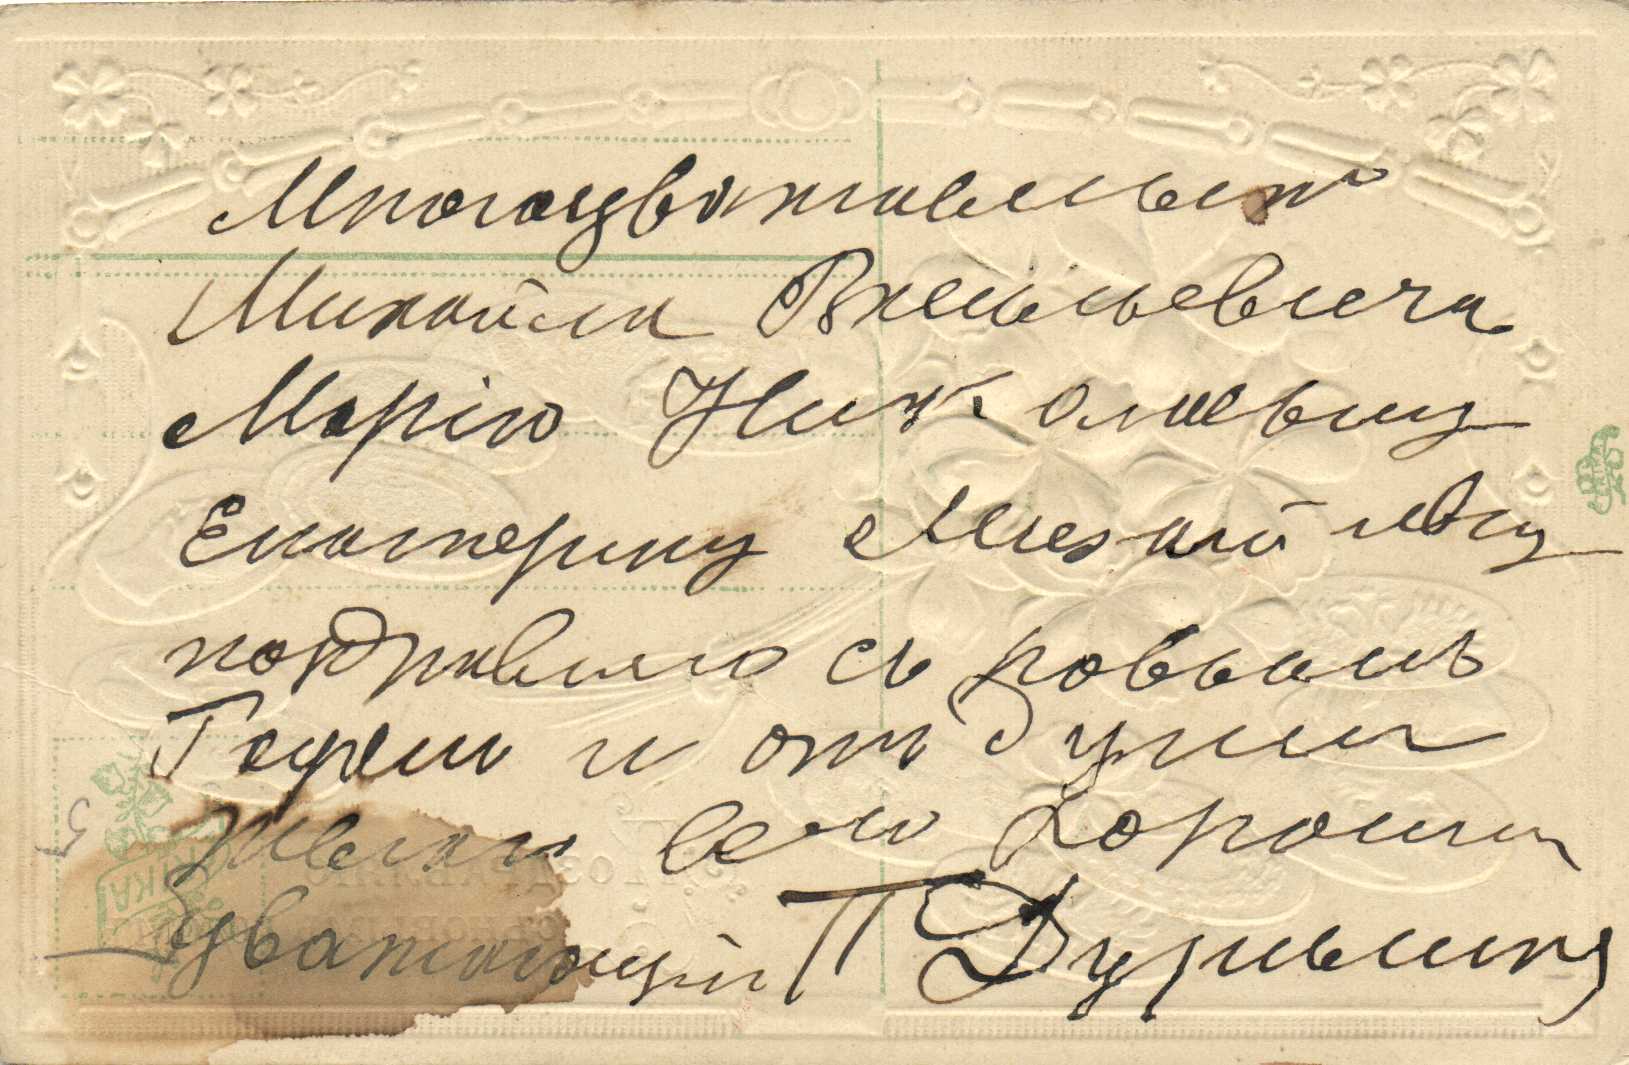 Многоуважаемыхъ
Михаила Васильевича
Марію Николаевну
Екатерину Михайловну
поздравляю съ новымъ
Годомъ и отъ души
Желаю всего хорошаго
Уважающій П